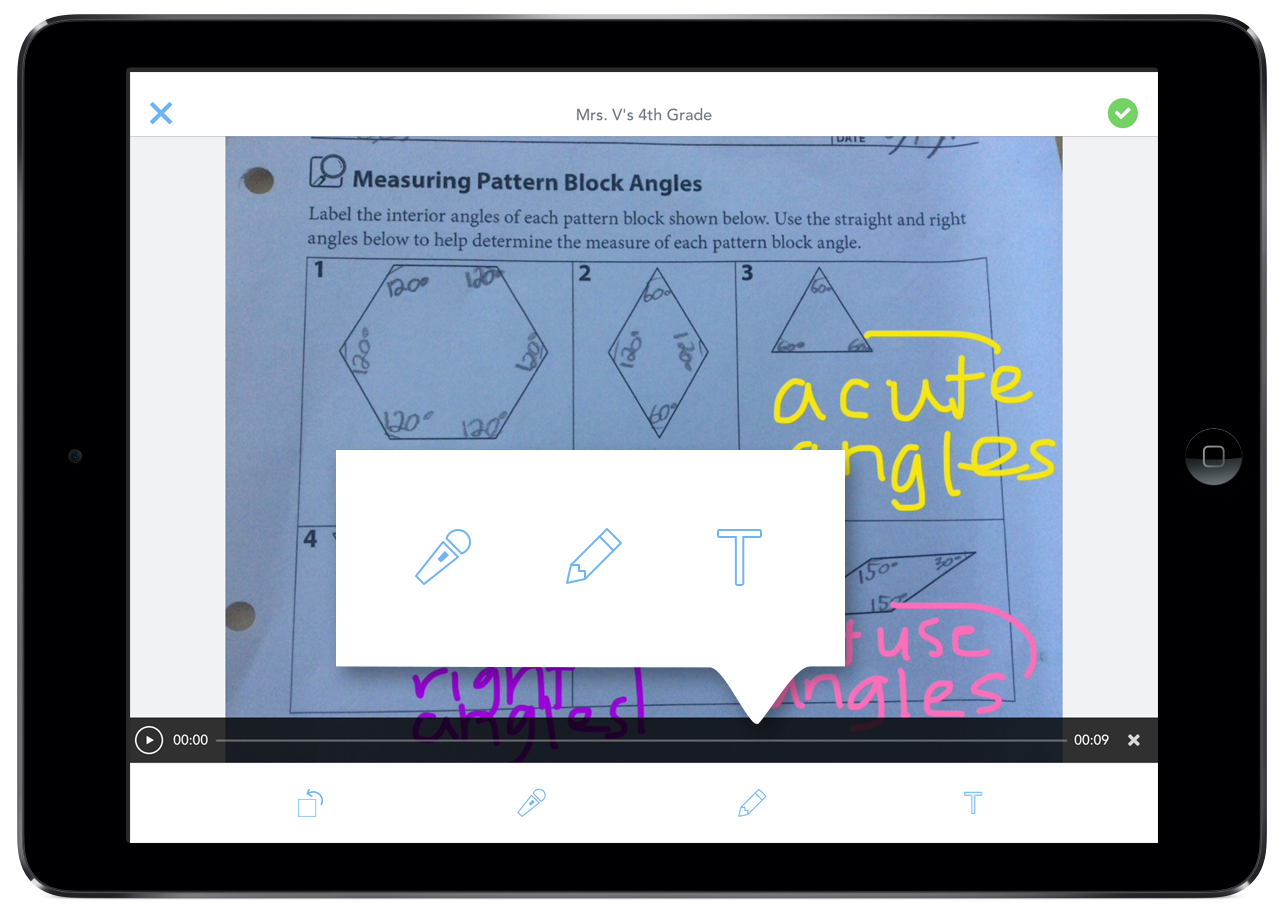 Mrs. V's 4th Grade
DATE
Measuring Pattern Block Angles
Label the interior angles of each pattern block shown below. Use the straight and right
angles below to help determine the measure of each pattern block angle.
1
120°
120°
120°
120°
120°
120°
2
60°
120°
120°
60°
3
60°
60°
60°
acute
angles
4
150°
30°
150°
tuse
angles
right
angles!
00:00
00:09
T
T